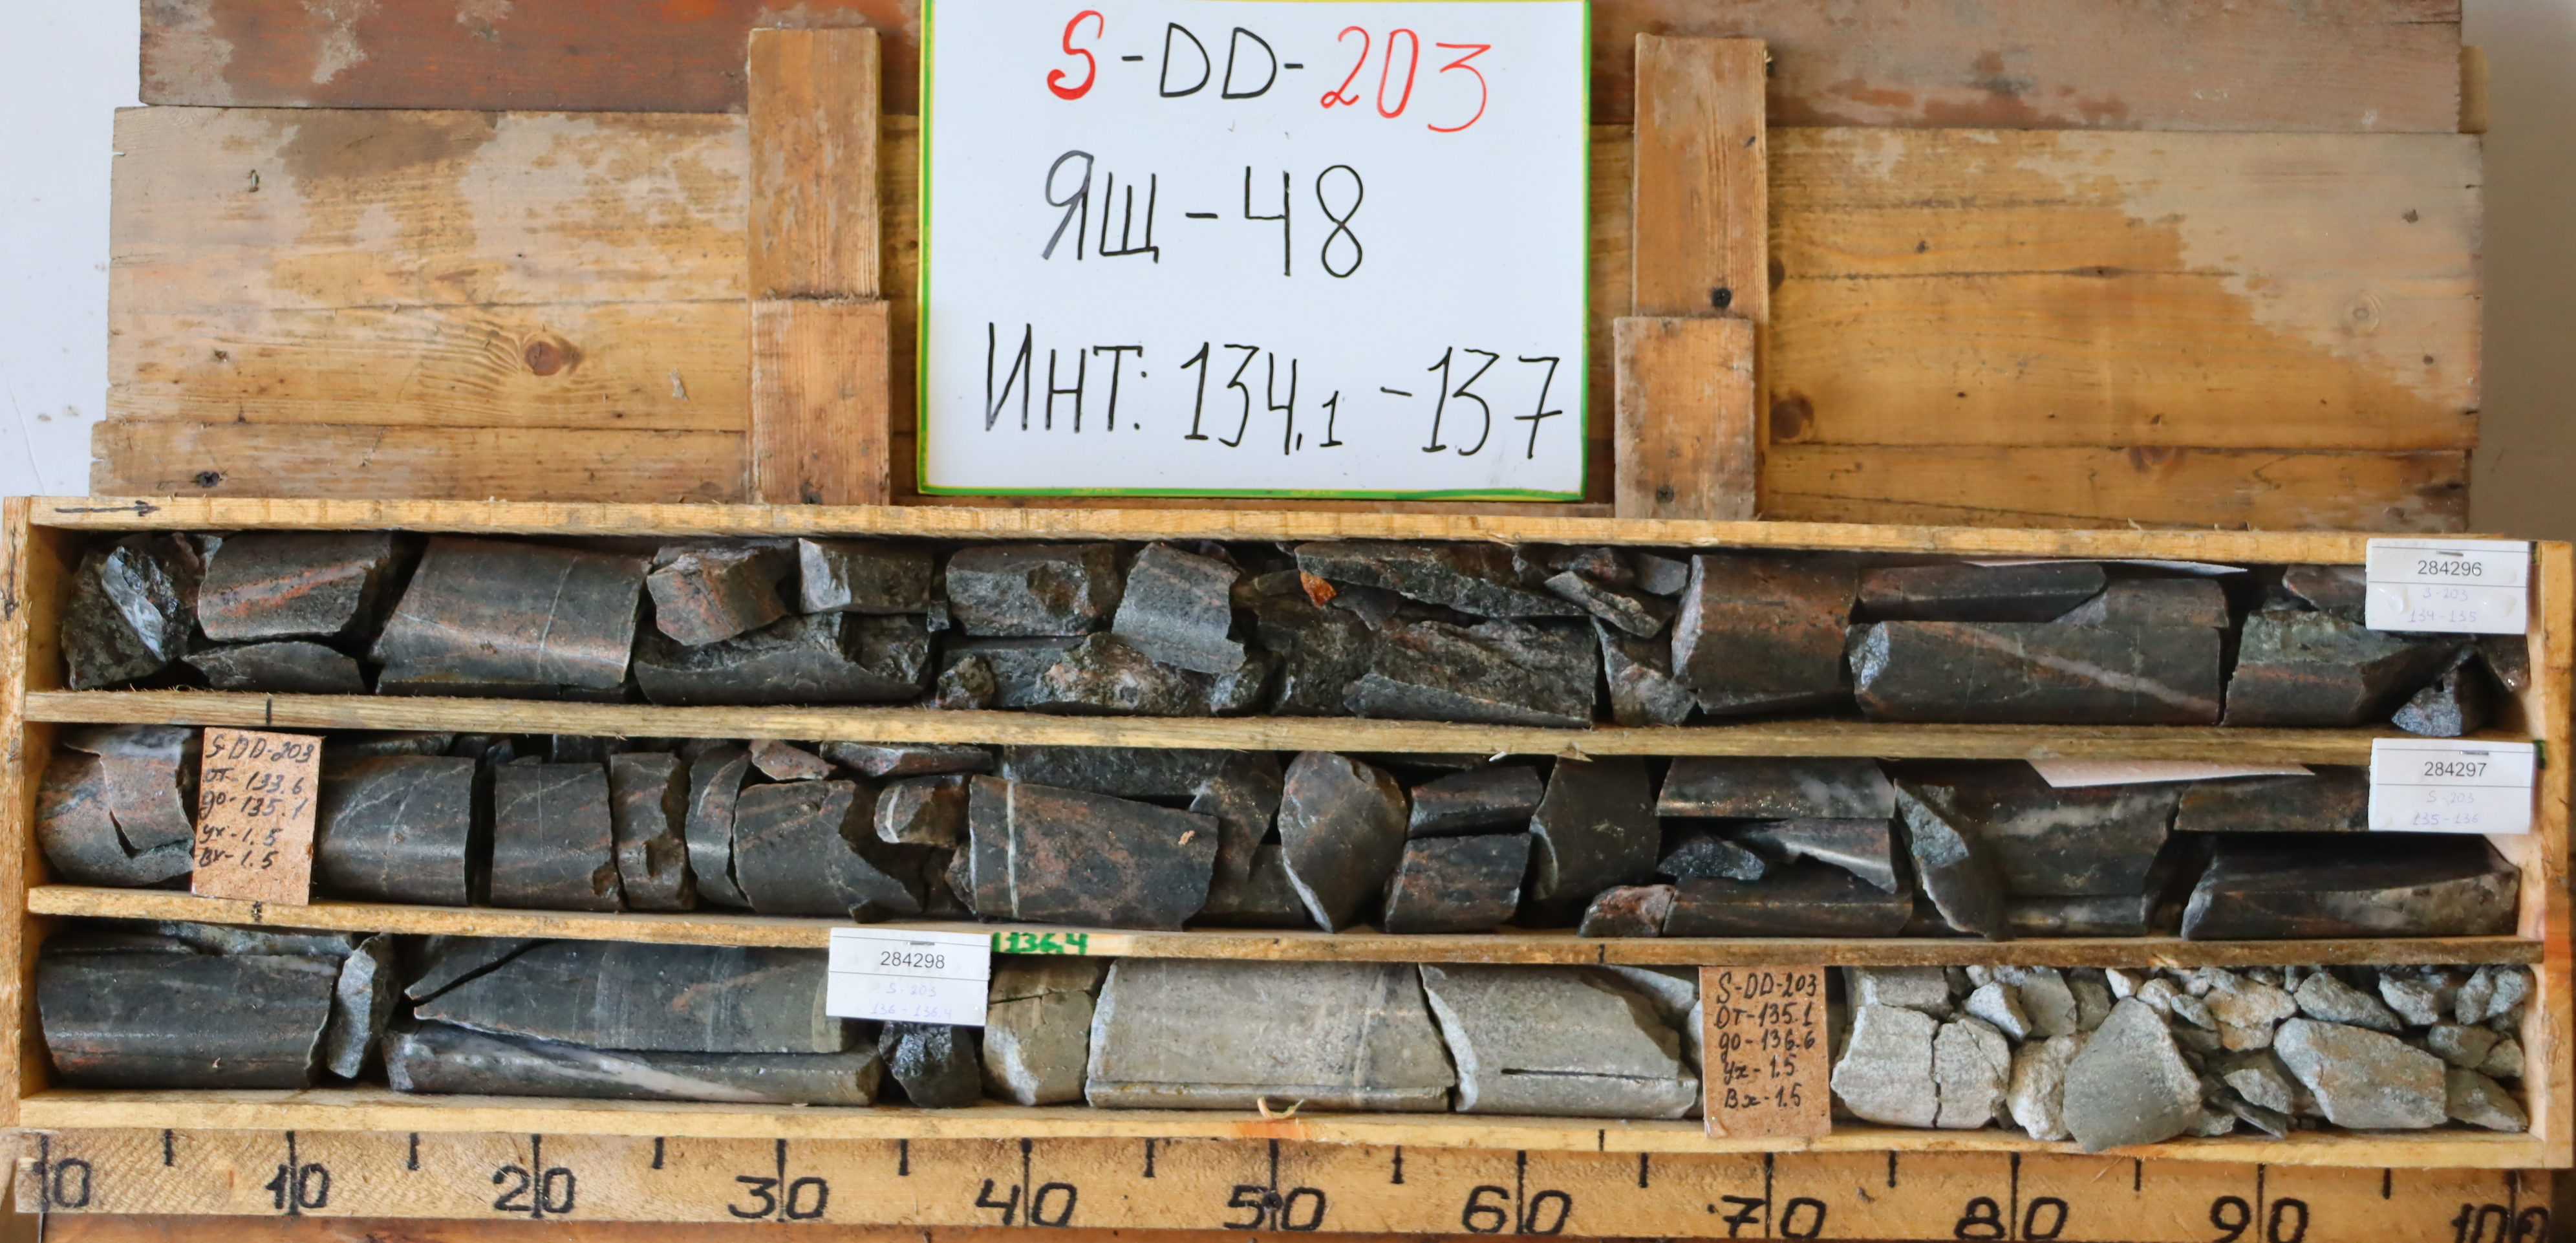 S-DD-203
ЯЩ-48
ИНТ: 134,1-137
284296
S-203
134-135
S-DD-203
от-133.6
до-135.1
ух-1.5
Вх-1.5
284297
S-203
135-136
136,4
284298
S-203
136-136.4
S-DD-203
От-135.1
до-136.6
Ух-1.5
Вх-1.5
0 10 20 30 40 50 60 70 80 90 100